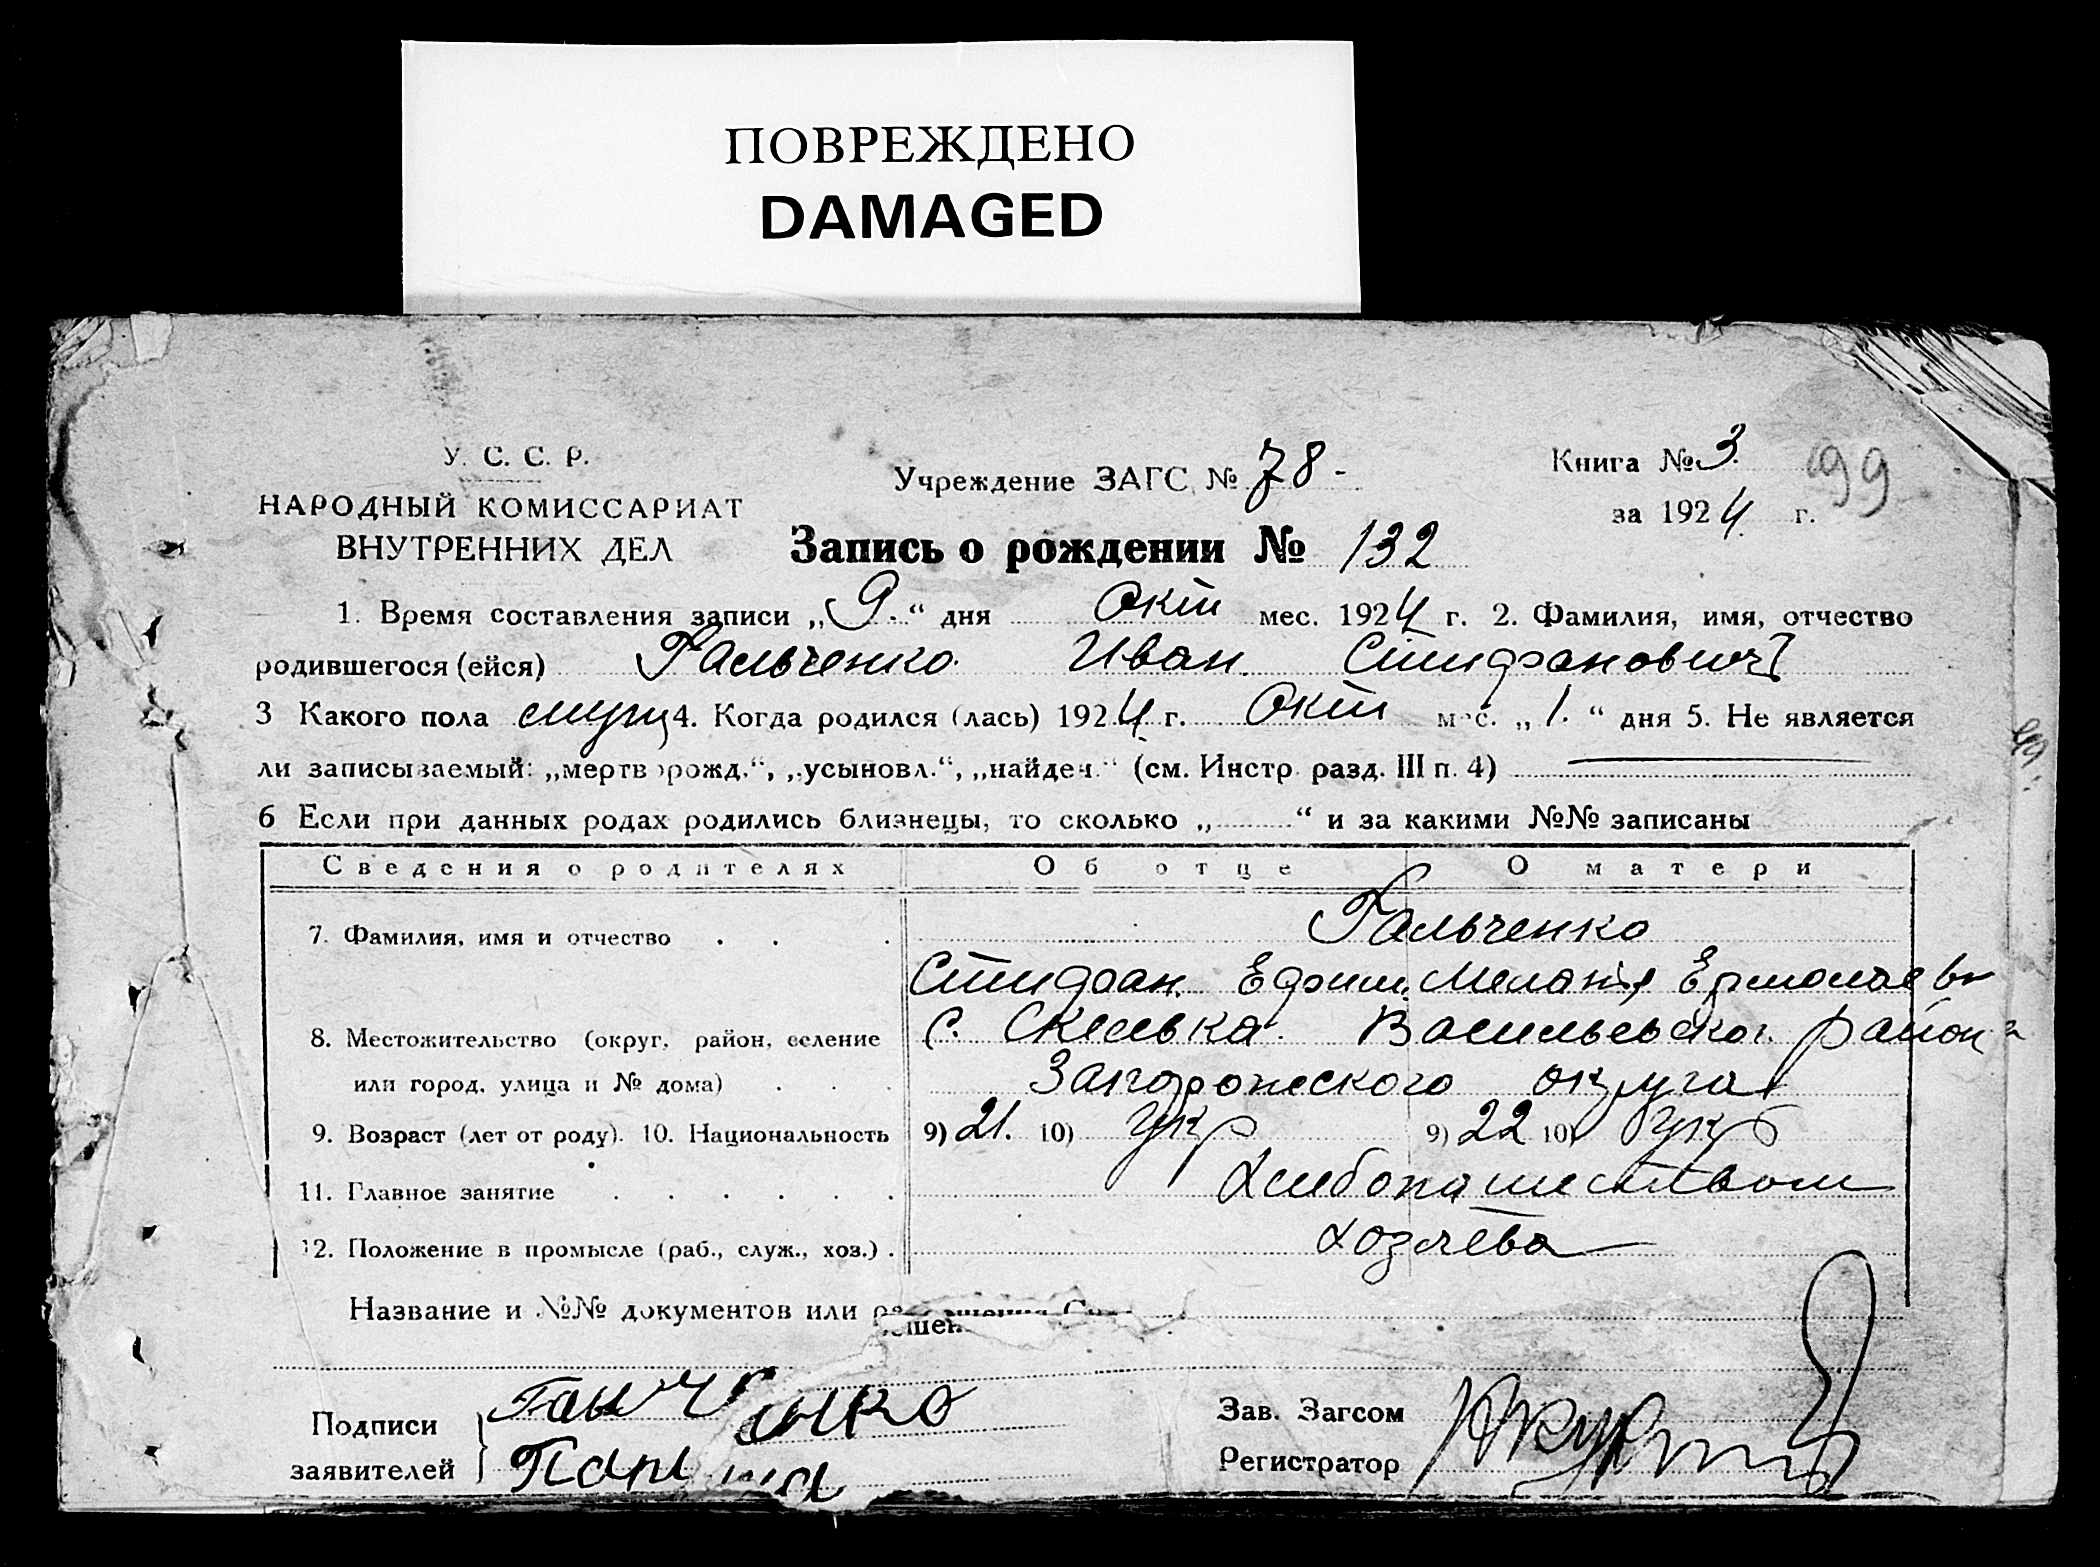 ПОВРЕЖДЕНО
DAMAGED
У. С. С. Р.
НАРОДНЫЙ КОМИССАРИАТ
ВНУТРЕННИХ ДЕЛ
Учреждение ЗАГС № 78 -
Книга № 3.
99
за 1924 г.
Запись о рождении № 132
1. Время составления записи „9.“ дня Окт мес. 1924 г. 2. Фамилия, имя, отчество
родившегося (ейся) Гальченко Иван Стифанович
3 Какого пола муж 4. Когда родился (лась) 1924 г. Окт мес. „1.“ дня 5. Не является
ли записываемый: „мертворожд.“, „усыновл.“, „найден.“ (см. Инстр. разд. III п. 4)
6 Если при данных родах родились близнецы, то сколько „ “ и за какими №№ записаны
Сведения о родителях Об отце О матери
7. Фамилия, имя и отчество Гальченко
Стифан Ефим. Мелания Ермолаев
8. Местожительство (округ, район, селение с. Скелька Васильевског. район
или город, улица и № дома) Запорожского округа
9. Возраст (лет от роду). 10. Национальность 9) 21. 10) Укр 9) 22 10) Укр
11. Главное занятие Хлебопашеством
12. Положение в промысле (раб., служ., хоз.) хозяева
Название и №№ документов или
Подписи
заявителей
Зав. Загсом
Регистратор